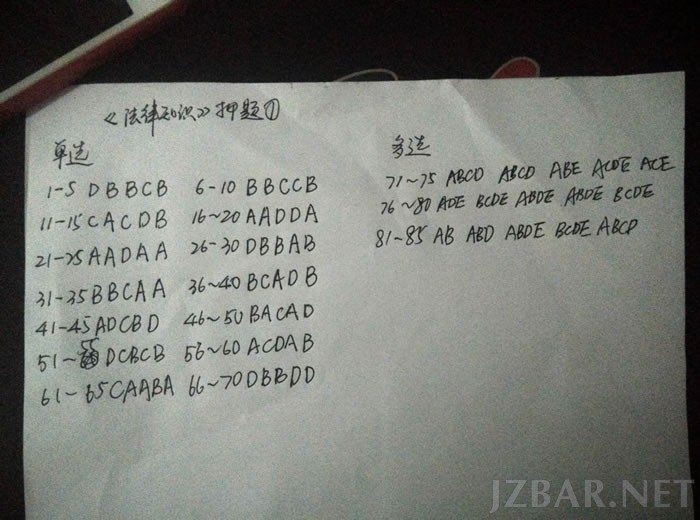 《法律知识》押题①
单选
1-5 DBBCB 6-10 BBCCB
11-15 CACDB 16~20 AADDA
21-25 AADAA 26-30 DBBAB
31-35 BBCAA 36~40 BCADB
41-45 ADCBD 46~50 BACAD
51~55 DCBCB 56~60 ACDAB
61-65 CAABA 66~70 DBBDD
多选
71~75 ABCD ABCD ABE ACDE ACE
76~80 ADE BCDE ABDE ABDE BCDE
81-85 AB ABD ABDE BCDE ABCD
JZBAR.NET